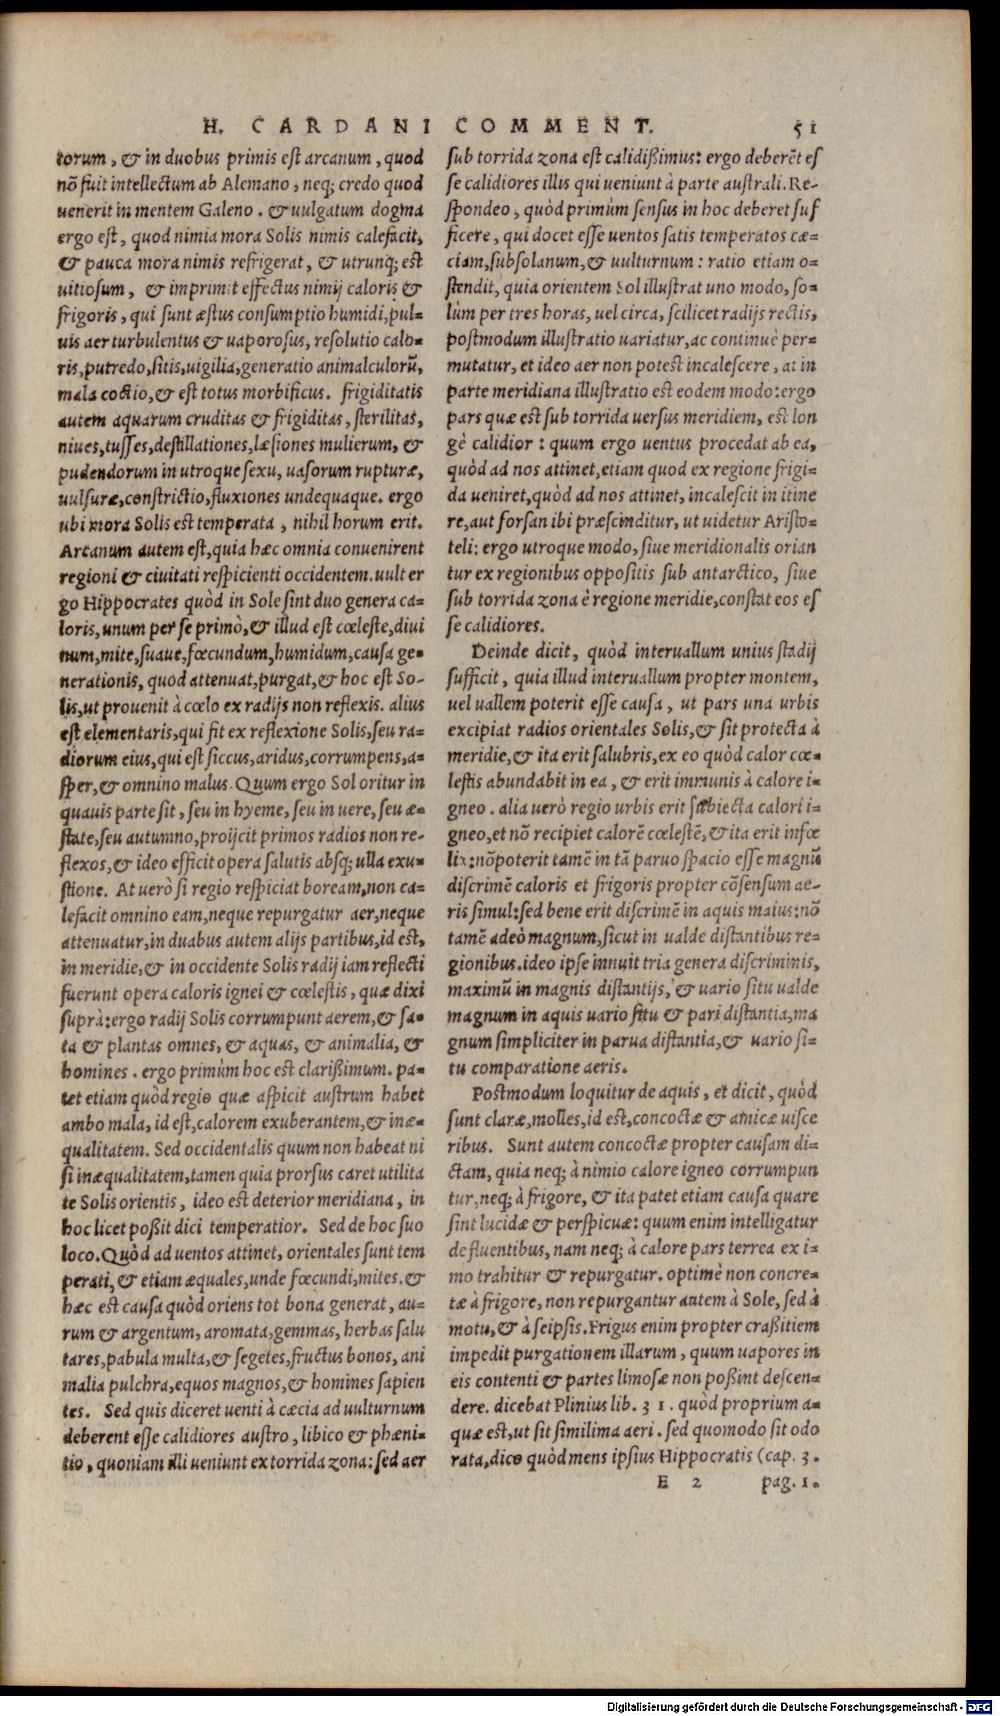 H. CARDANI COMMENT. 51
torum, & in duobus primis est arcanum, quod
nõ fuit intellectum ab Alemano, neq; credo quod
uenerit in mentem Galeno. & uulgatum dogma
ergo est, quod nimia mora Solis nimis calefacit,
& pauca mora nimis refrigerat, & utrunq; est
uitiosum, & imprimit effectus nimij caloris &
frigoris, qui sunt æstus consumptio humidi, pul-
uis aer turbulentus & uaporosus, resolutio calo-
ris, putredo, sitis, uigilia, generatio animalculorũ,
mala coctio, & est totus morbificus. frigiditatis
autem aquarum cruditas & frigiditas, sterilitas,
niues, tusses, destillationes, læsiones mulierum, &
pudendorum in utroque sexu, uasorum rupturæ,
uulsuræ, constrictio, fluxiones undequaque. ergo
ubi mora Solis est temperata, nihil horum erit.
Arcanum autem est, quia hæc omnia conuenirent
regioni & ciuitati respicienti occidentem. uult er
go Hippocrates quòd in Sole sint duo genera ca-
loris, unum per se primò, & illud est cœleste, diui
num, mite, suaue, fœcundum, humidum, causa ge-
nerationis, quod attenuat, purgat, & hoc est So-
lis, ut prouenit à cœlo ex radijs non reflexis. alius
est elementaris, qui fit ex reflexione Solis, seu ra-
diorum eius, qui est siccus, aridus, corrumpens, a-
sper, & omnino malus. Quum ergo Sol oritur in
quauis parte sit, seu in hyeme, seu in uere, seu æ-
state, seu autumno, proijcit primos radios non re-
flexos, & ideo efficit opera salutis absq; ulla exu-
stione. At uerò si regio respiciat boream, non ca-
lefacit omnino eam, neque repurgatur aer, neque
attenuatur, in duabus autem alijs partibus, id est,
in meridie, & in occidente Solis radij iam reflecti
fuerunt opera caloris ignei & cœlestis, quæ dixi
suprà: ergo radij Solis corrumpunt aerem, & sa-
ta & plantas omnes, & aquas, & animalia, &
homines. ergo primùm hoc est clarißimum. pa-
tet etiam quòd regio quæ aspicit austrum habet
ambo mala, id est, calorem exuberantem, & inæ-
qualitatem. Sed occidentalis quum non habeat ni
si inæqualitatem, tamen quia prorsus caret utilita
te Solis orientis, ideo est deterior meridiana, in
hoc licet poßit dici temperatior. Sed de hoc suo
loco. Quòd ad uentos attinet, orientales sunt tem
perati, & etiam æquales, unde fœcundi, mites. &
hæc est causa quòd oriens tot bona generat, au-
rum & argentum, aromata, gemmas, herbas salu
tares, pabula multa, & segetes, fructus bonos, ani
malia pulchra, equos magnos, & homines sapien
tes. Sed quis diceret uenti à cæcia ad uulturnum
deberent esse calidiores austro, libico & phæni-
tio, quoniam illi ueniunt ex torrida zona: sed aer
sub torrida zona est calidißimus: ergo deberẽt es
se calidiores illis qui ueniunt à parte australi. Re-
spondeo, quòd primùm sensus in hoc deberet suf
ficere, qui docet esse uentos satis temperatos cæ-
ciam, subsolanum, & uulturnum: ratio etiam o-
stendit, quia orientem Sol illustrat uno modo, so-
lùm per tres horas, uel circa, scilicet radijs rectis,
postmodum illustratio uariatur, ac continuè per-
mutatur, et ideo aer non potest incalescere, at in
parte meridiana illustratio est eodem modo: ergo
pars quæ est sub torrida uersus meridiem, est lon
gè calidior: quum ergo uentus procedat ab ea,
quòd ad nos attinet, etiam quod ex regione frigi-
da ueniret, quòd ad nos attinet, incalescit in itine
re, aut forsan ibi præscinditur, ut uidetur Aristo-
teli: ergo utroque modo, siue meridionalis orian
tur ex regionibus oppositis sub antarctico, siue
sub torrida zona è regione meridie, constat eos es
se calidiores.
Deinde dicit, quòd interuallum unius stadij
sufficit, quia illud interuallum propter montem,
uel uallem poterit esse causa, ut pars una urbis
excipiat radios orientales Solis, & sit protecta à
meridie, & ita erit salubris, ex eo quòd calor cœ-
lestis abundabit in ea, & erit immunis à calore i-
gneo. alia uerò regio urbis erit subiecta calori i-
gneo, et nõ recipiet calorẽ cœlestẽ, & ita erit infœ
lix: nõ poterit tamẽ in tã paruo spacio esse magnũ
discrimẽ caloris et frigoris propter cõsensum ae-
ris simul: sed bene erit discrimẽ in aquis maius: nõ
tamẽ adeò magnum, sicut in ualde distantibus re-
gionibus. ideo ipse innuit tria genera discriminis,
maximũ in magnis distantijs, & uario situ ualde
magnum in aquis uario situ & pari distantia, ma
gnum simpliciter in parua distantia, & uario si-
tu comparatione aeris.
Postmodum loquitur de aquis, et dicit, quòd
sunt claræ, molles, id est, concoctæ & amicæ uisce
ribus. Sunt autem concoctæ propter causam di-
ctam, quia neq; à nimio calore igneo corrumpun
tur, neq; à frigore, & ita patet etiam causa quare
sint lucidæ & perspicuæ: quum enim intelligatur
de fluentibus, nam neq; à calore pars terrea ex i-
mo trahitur & repurgatur. optimè non concre-
tæ à frigore, non repurgantur autem à Sole, sed à
motu, & à seipsis. Frigus enim propter craßitiem
impedit purgationem illarum, quum uapores in
eis contenti & partes limosæ non poßint descen-
dere. dicebat Plinius lib. 31. quòd proprium a-
quæ est, ut sit similima aeri. sed quomodo sit odo
rata, dico quòd mens ipsius Hippocratis (cap. 3.
E 2 pag. 1.
Digitalisierung gefördert durch die Deutsche Forschungsgemeinschaft - DFG